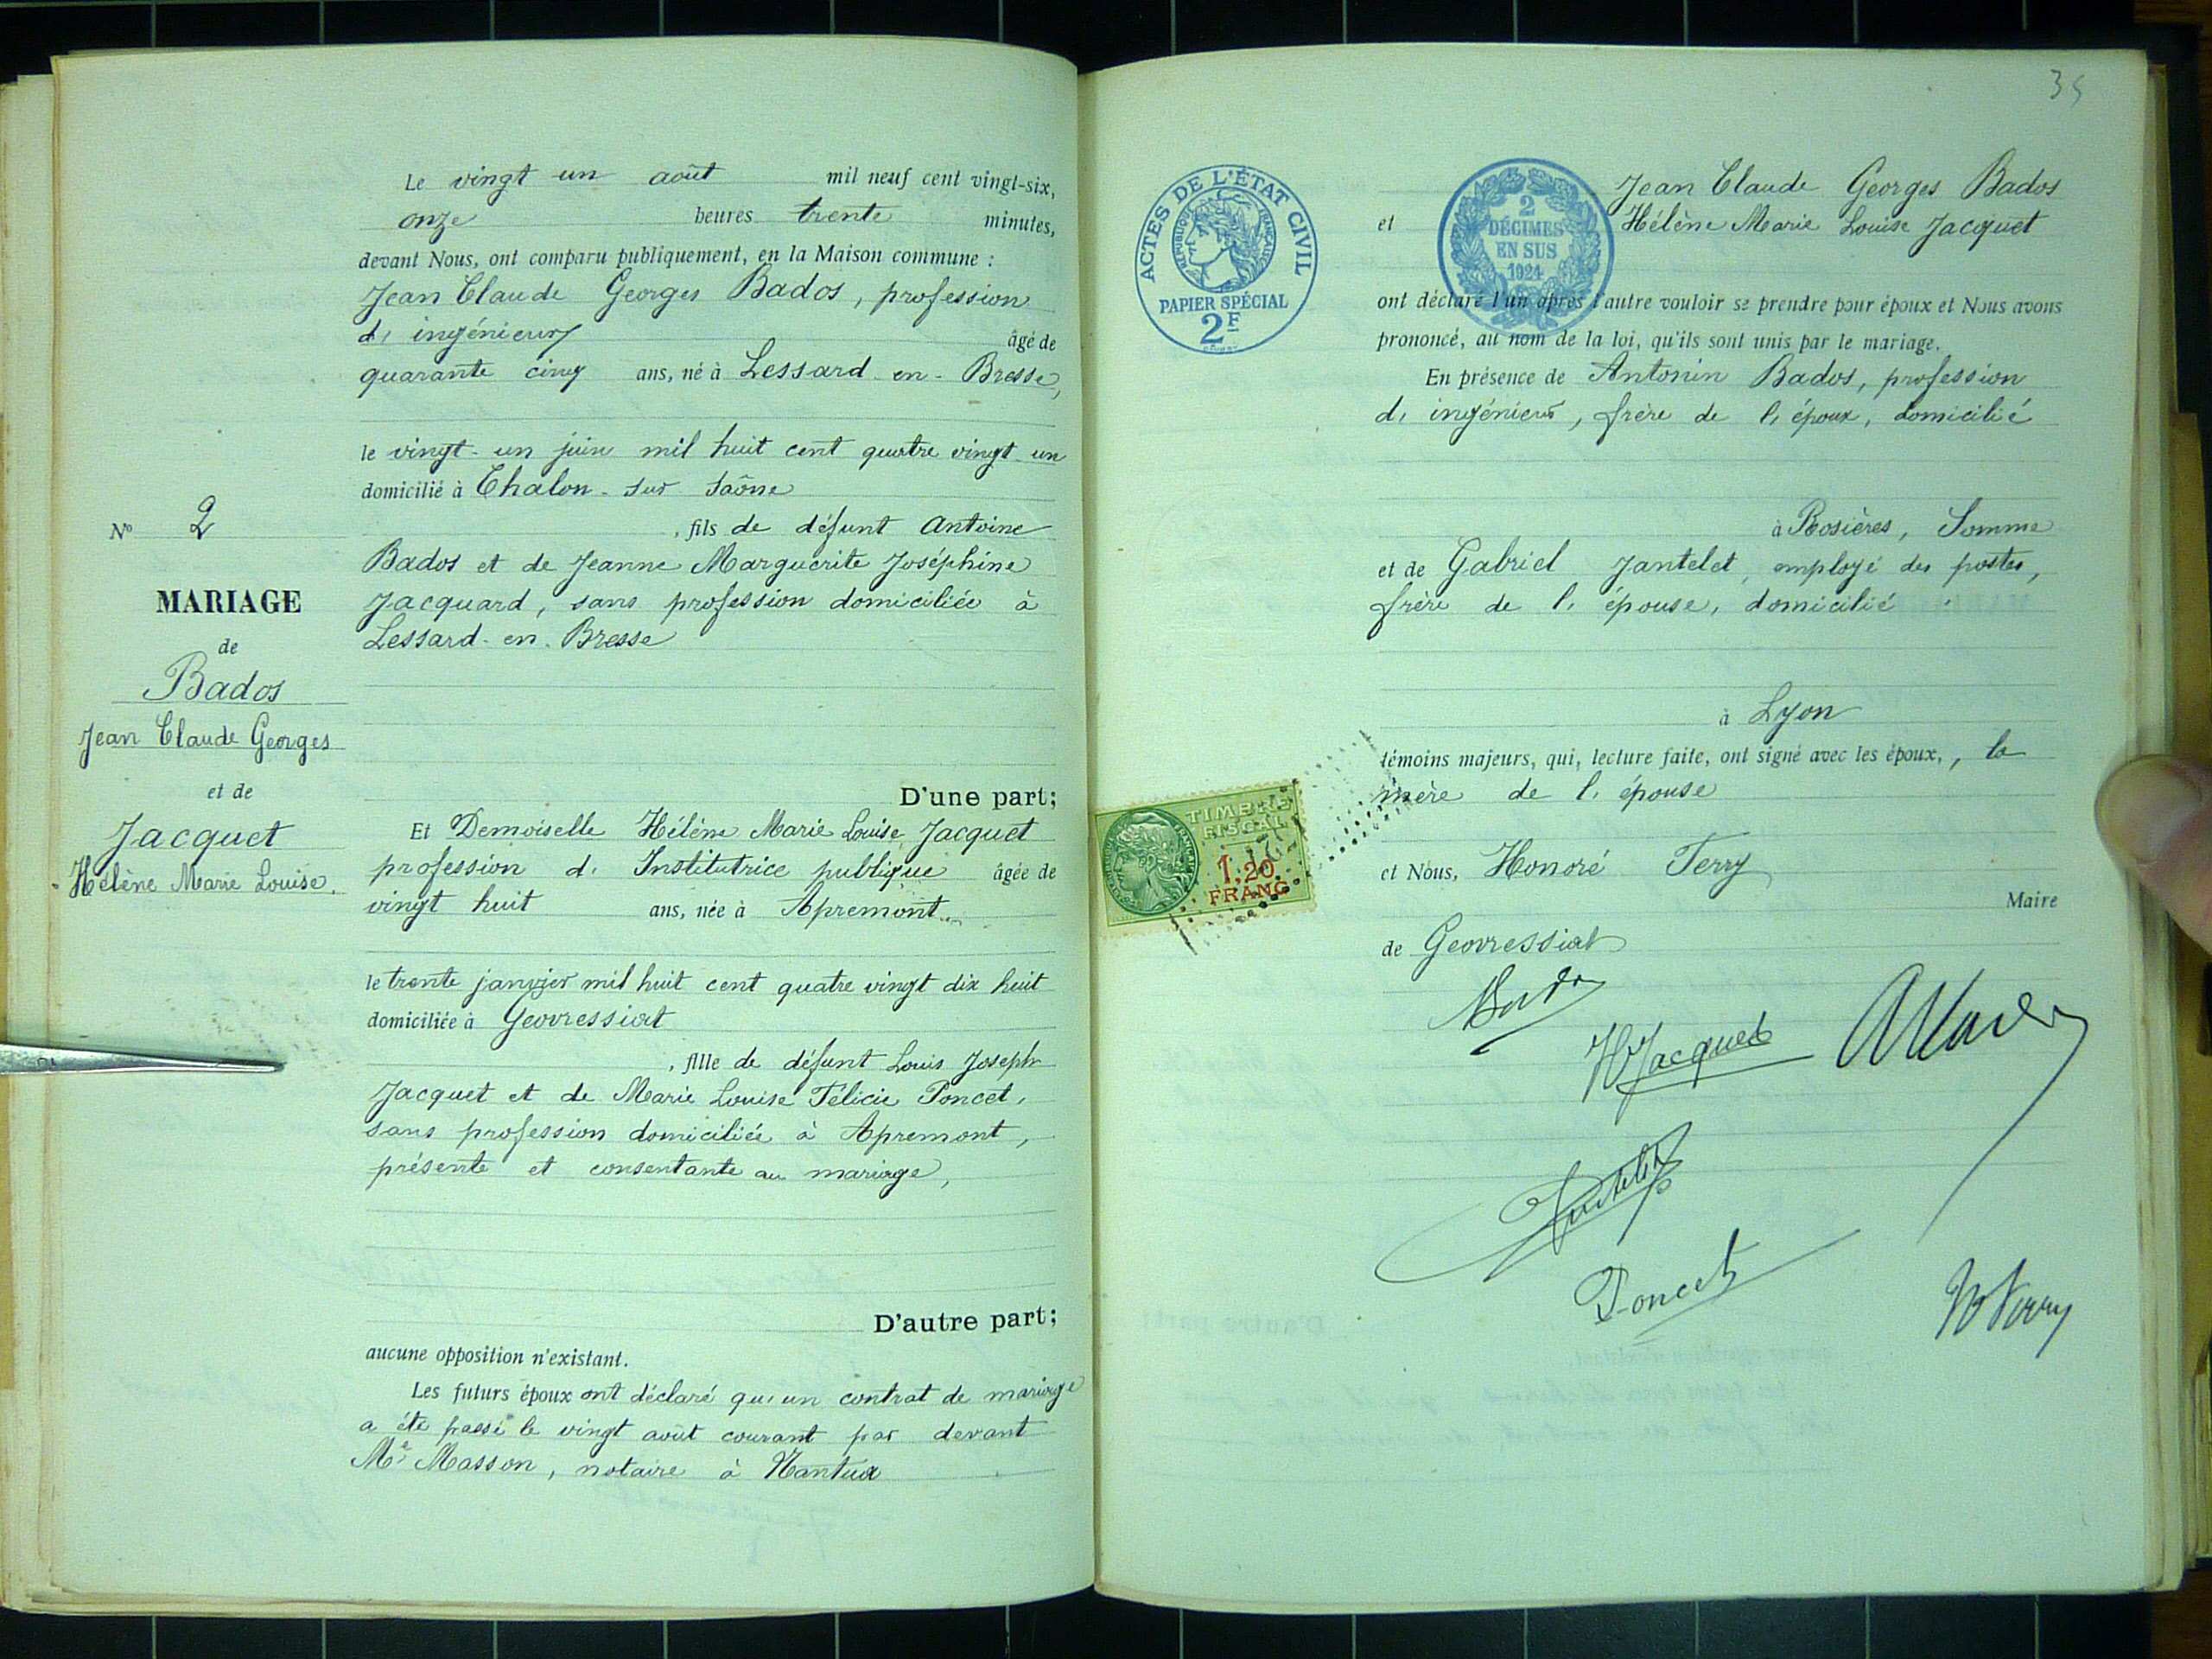 Le vingt un août mil neuf cent vingt-six,
onze heures trente minutes,
devant Nous, ont comparu publiquement, en la Maison commune :
Jean Claude Georges Bados, profession
d' ingénieur âgé de
quarante cinq ans, né à Lessard-en-Bresse,
le vingt-un juin mil huit cent quatre vingt-un
domicilié à Chalon-sur Saône
, fils de défunt Antoine
Bados et de Jeanne Marguerite Joséphine
Jacquard, sans profession domiciliée à
Lessard-en-Bresse
D'une part;
N° 2
MARIAGE
de
Bados
Jean Claude Georges
et de
Jacquet
Hélène Marie Louise.
Et Demoiselle Hélène Marie Louise Jacquet
profession d' Institutrice publique âgée de
vingt huit ans, née à Apremont
le trente janvier mil huit cent quatre vingt dix huit
domiciliée à Geovressiat
, fille de défunt Louis Joseph
Jacquet et de Marie Louise Félicie Poncet,
sans profession domiciliée à Apremont,
présente et consentante au mariage,
D'autre part;
aucune opposition n'existant.
Les futurs époux ont déclaré qu'un contrat de mariage
a été passé le vingt août courant par devant
Me Masson, notaire à Nantua
35
ACTES DE L'ÉTAT CIVIL
RÉPUBLIQUE FRANÇAISE
PAPIER SPÉCIAL
2F
2
DÉCIMES
EN SUS
1924
Jean Claude Georges Bados
et Hélène Marie Louise Jacquet
ont déclaré l'un après l'autre vouloir se prendre pour époux et Nous avons
prononcé, au nom de la loi, qu'ils sont unis par le mariage.
En présence de Antonin Bados, profession
d' ingénieur, frère de l' époux, domicilié
à Rosières, Somme
et de Gabriel Jantelet, employé des postes,
frère de l' épouse, domicilié
à Lyon
témoins majeurs, qui, lecture faite, ont signé avec les époux, , la
mère de l' épouse
et Nous, Honoré Terry
Maire
de Geovressiat
TIMBRE
FISCAL
1,20
FRANC
H Jacquet
Poncet